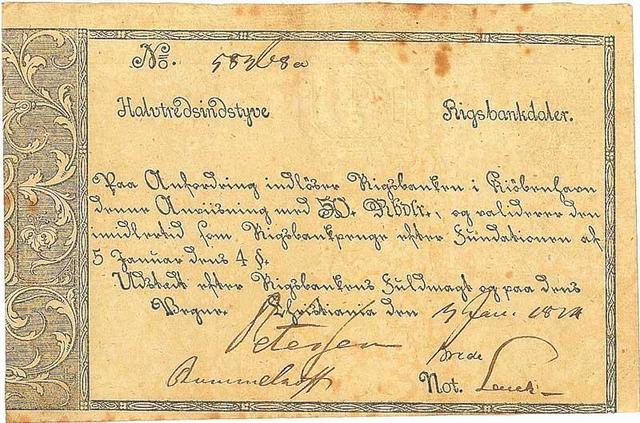 No. 58368a
Halvtredsindstyve Rigsbankdaler.
Paa Anfordring indlöser Rigsbanken i Kiöbenhavn
denne Anviisning med 50. Rbdlr., og validerer den
imidlertid som Rigsbankpenge efter Fundationen af
5 Januar dens 4 §.
Udstedt efter Rigsbankens Fuldmagt og paa dens
Vegne. Christiania den Jan. 1814
Petersen
Not.